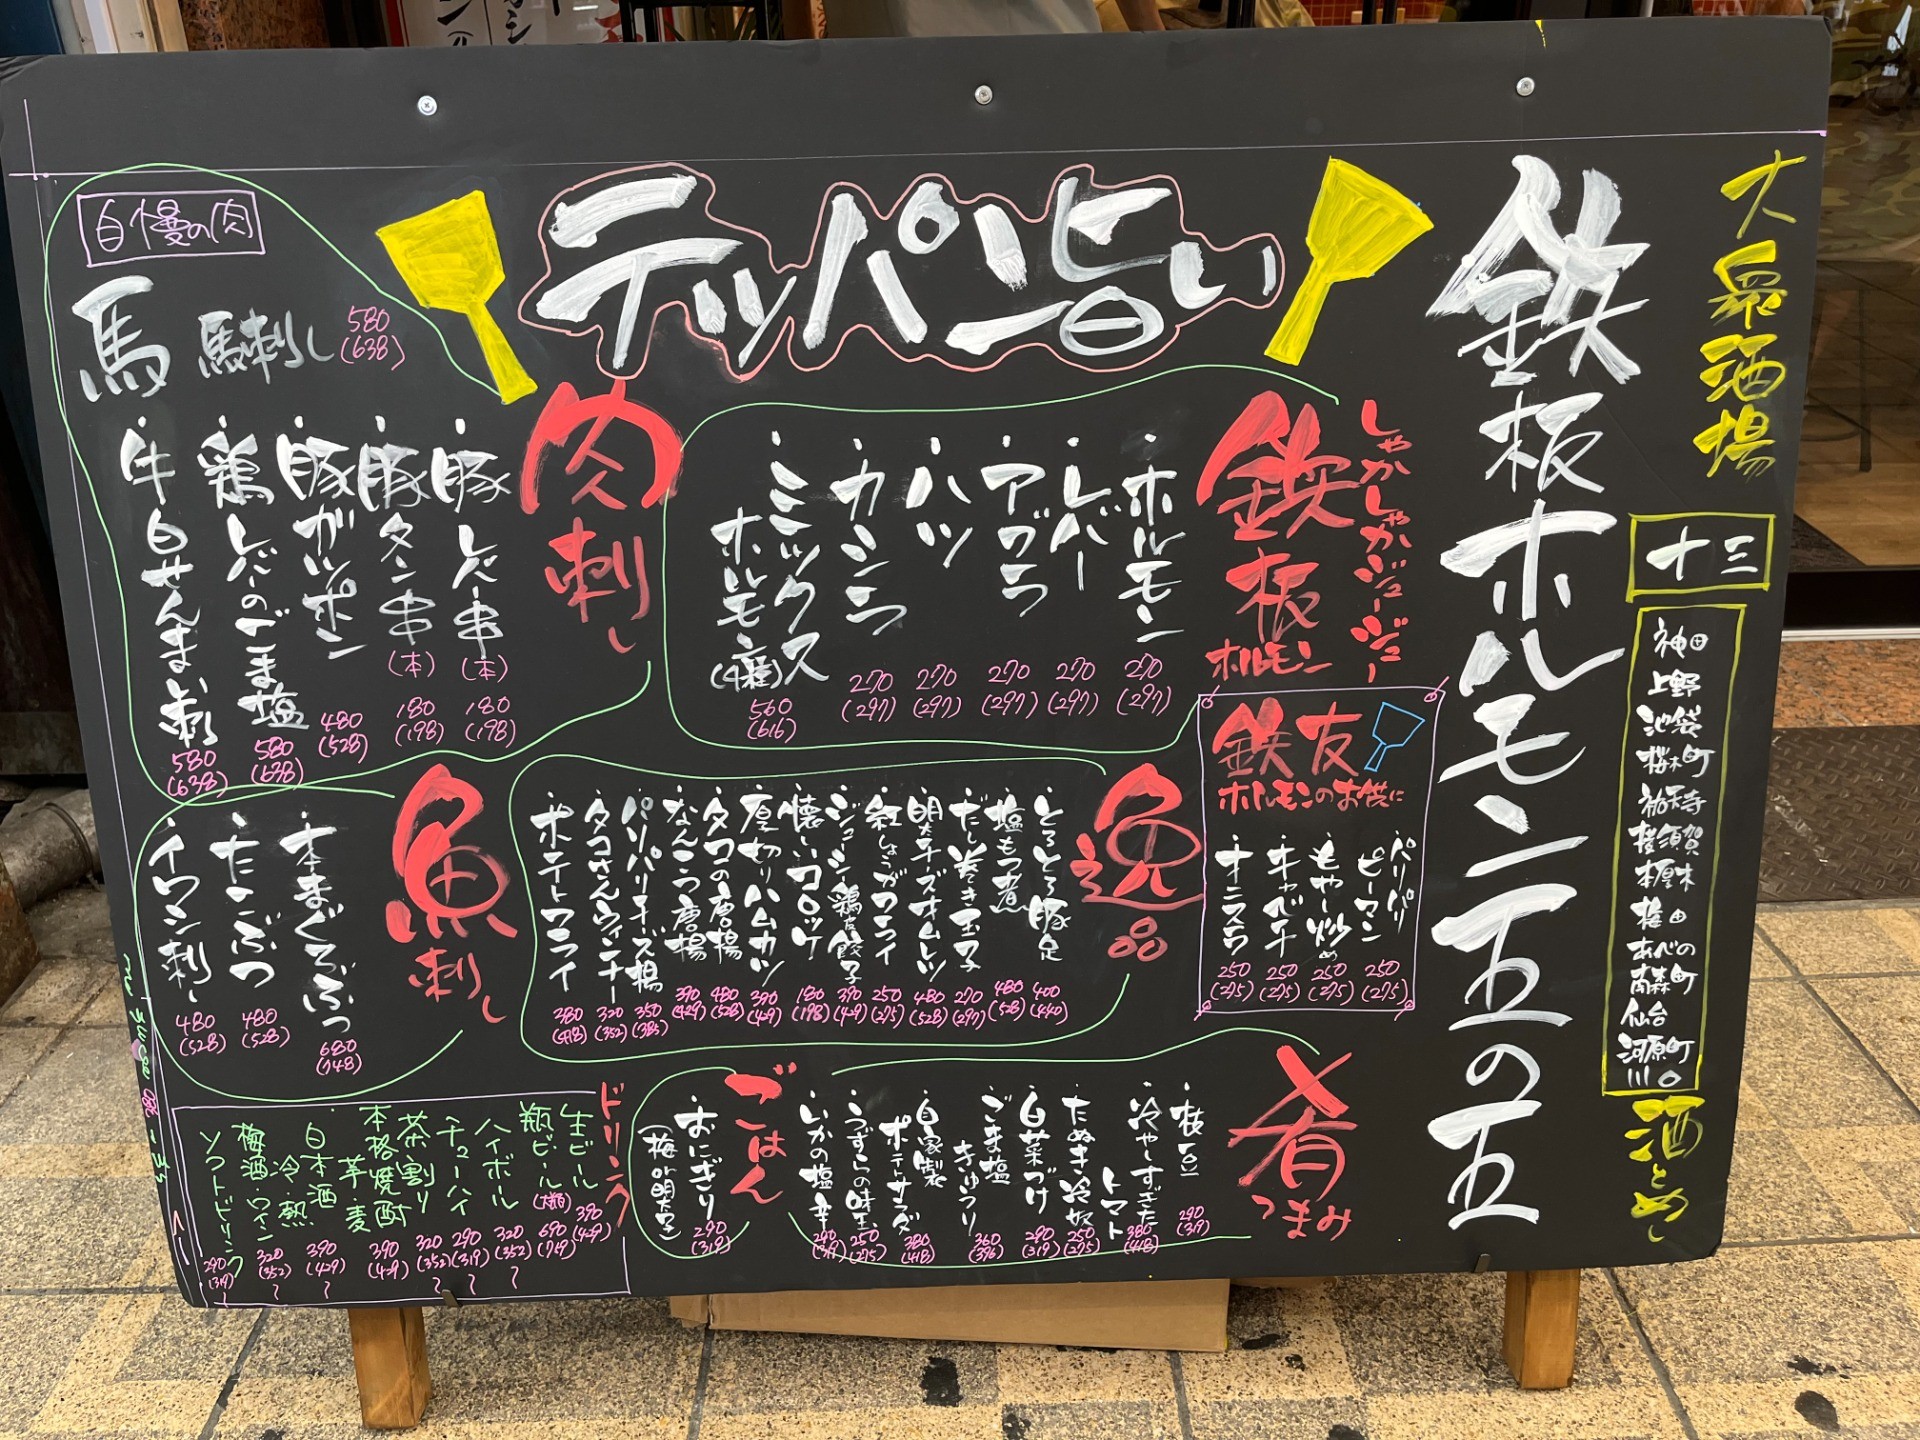 大衆酒場
十三
神田
上野
池袋
桜木町
祐天寺
横須賀
本厚木
梅田
あべの
南森町
仙台
河原町
川口
酒とめし
鉄板ホルモン五の五
テッパン旨い
しゃかしゃかジュージュー
鉄板
ホルモン
・ホルモン 270 (297)
・レバー 270 (297)
・アブラ 270 (297)
・ハツ 270 (297)
・カシラ 270 (297)
・ミックスホルモン (4種) 560 (616)
鉄友
ホルモンのお供に
・パリパリピーマン 250 (275)
・もやし炒め 250 (275)
・キャベチ 250 (275)
・オニスラ 250 (275)
肉刺し
・豚レバー串 (本) 180 (198)
・豚タン串 (本) 180 (198)
・豚ガツポン 480 (528)
・鶏レバーのごま塩 580 (638)
・牛白せんまい刺 580 (638)
自慢の肉
馬
馬刺し 580 (638)
逸品
・とろとろ豚足 400 (440)
・塩もつ煮 480 (528)
・だし巻き玉子 270 (297)
・明太チーズオムレツ 480 (528)
・紅しょうがフライ 250 (275)
・ジューシー鶏皮餃子 390 (429)
・懐しコロッケ 180 (198)
・厚切りハムカツ 390 (429)
・タコの唐揚 480 (528)
・なんこつ唐揚 390 (429)
・パリパリチーズ揚 350 (385)
・タコさんウィンナー 320 (352)
・ポテトフライ 380 (418)
魚刺し
・本まぐろぶつ 680 (748)
・たこぶつ 480 (528)
・イワシ刺し 480 (528)
肴
つまみ
・枝豆 290 (319)
・冷やしすぎたトマト 380 (418)
・たぬき冷奴 250 (275)
・白菜づけ 290 (319)
・ごま塩きゅうり 360 (396)
・自家製ポテトサラダ 380 (418)
・うずらの味玉 250 (275)
・いかの塩辛 290 (319)
ごはん
・おにぎり 290 (319)
(梅or明太子)
ドリンク
生ビール 390 (429)
瓶ビール (大瓶) 690 (759)
ハイボール 320 (352)〜
チューハイ 290 (319)〜
茶割り 320 (352)〜
本格焼酎 芋 麦 390 (429)
日本酒 冷・熱 390 (429)〜
梅酒 ワイン 320 (352)〜
ソフトドリンク 290 (319)〜